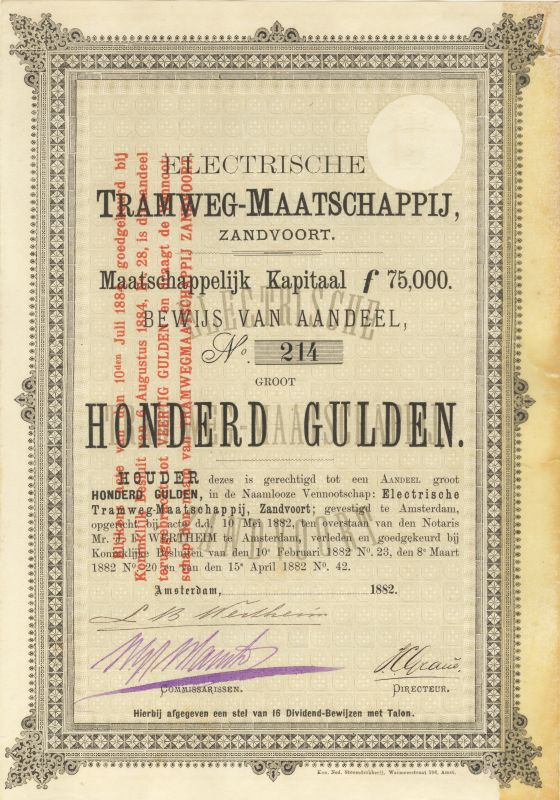 ELECTRISCHE
TRAMWEG-MAATSCHAPPIJ,
ZANDVOORT.
Maatschappelijk Kapitaal f 75,000.
BEWIJS VAN AANDEEL,
No. 214
GROOT
HONDERD GULDEN.
HOUDER dezes is gerechtigd tot een AANDEEL groot
HONDERD GULDEN, in de Naamlooze Vennootschap: Electrische
Tramweg-Maatschappij, Zandvoort; gevestigd te Amsterdam,
opgericht bij acte d.d. 10 Mei 1882, ten overstaan van den Notaris
Mr. J. P. WERTHEIM te Amsterdam, verleden en goedgekeurd bij
Koninklijke Besluiten van den 10e Februari 1882 No. 23, den 8e Maart
1882 No. 20 en van den 15e April 1882 No. 42.
Amsterdam, 1882.
L B Wertheim
COMMISSARISSEN.
DIRECTEUR.
Hierbij afgegeven een stel van 16 Dividend-Bewijzen met Talon.
Kon. Ned. Steendrukkerij, Warmoesstraat 106, Amst.
Juli 1884, goedgekeurd bij
Koninklijk Besluit van 6 Augustus 1884, No. 28, is dit aandeel
teruggebracht tot VEERTIG GULDEN en draagt de vennoot-
schap den naam van TRAMWEGMAATSCHAPPIJ ZANDVOORT.
ELECTRISCHE
TRAMWEG-MAATSCHAPPIJ
ZANDVOORT